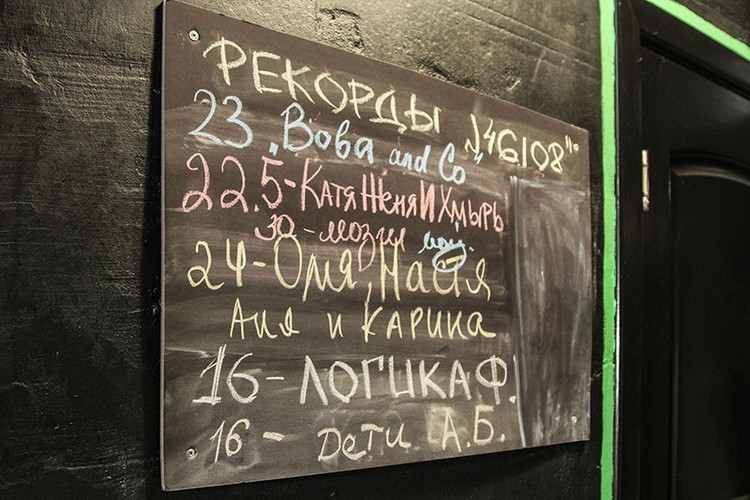 РЕКОРДЫ
23 Вова and Co
22.5-КАТЯ ЖЕНЯ И ХМЫРЬ
24-Оля, Настя
Аня и КАРИНА
16-ЛОГИКА Ф.
16 - дети А.Б.